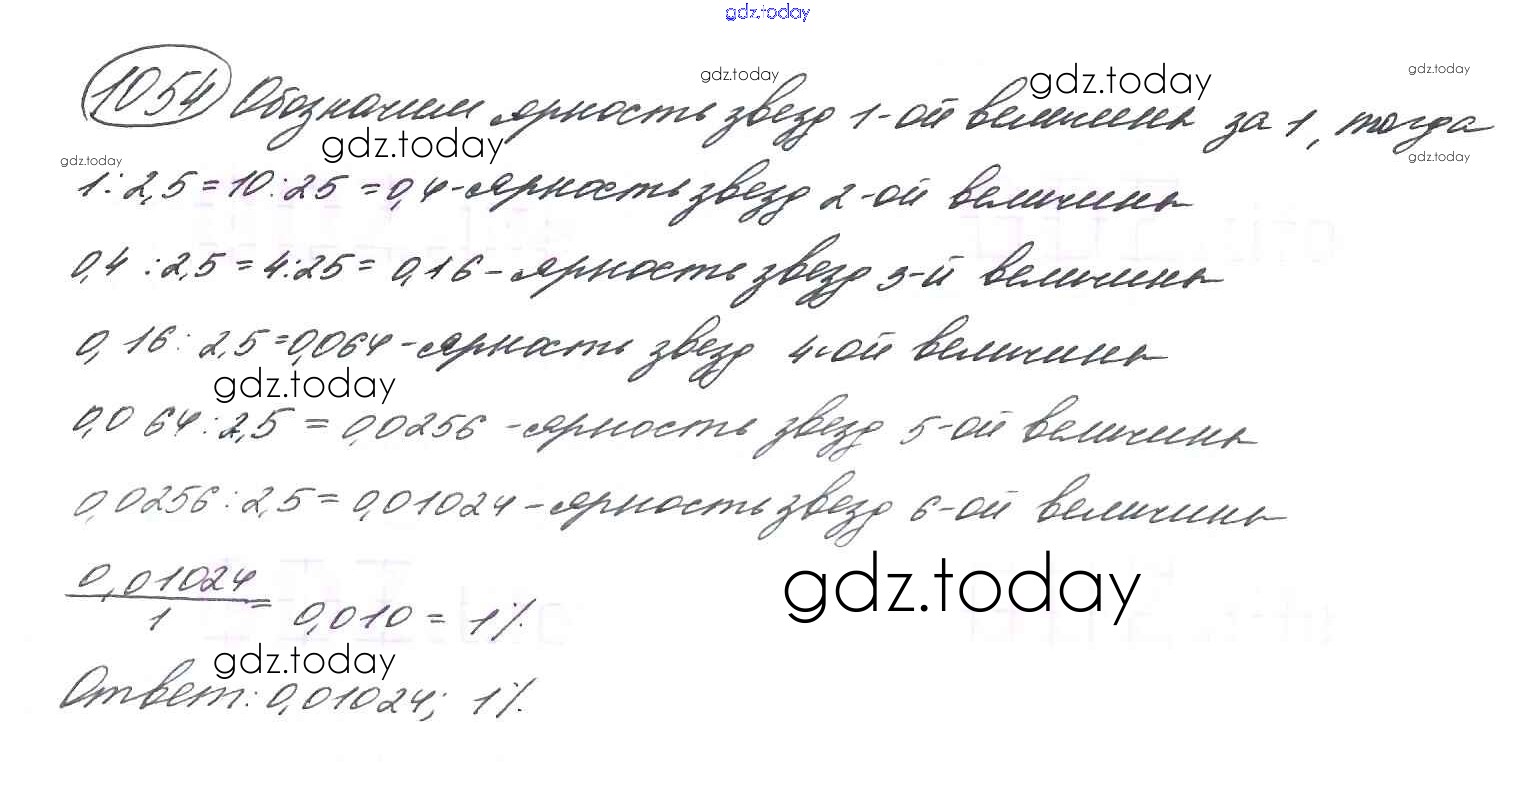 gdz.today
gdz.today gdz.today gdz.today
1054 Обозначим яркость звезд 1-ой величины за 1, тогда
gdz.today gdz.today gdz.today
1 : 2,5 = 10 : 25 = 0,4 - яркость звезд 2-ой величины
0,4 : 2,5 = 4 : 25 = 0,16 - яркость звезд 3-й величины
0,16 : 2,5 = 0,064 - яркость звезд 4-ой величины
gdz.today
0,064 : 2,5 = 0,0256 - яркость звезд 5-ой величины
0,0256 : 2,5 = 0,01024 - яркость звезд 6-ой величины
gdz.today
0,01024/1 = 0,010 = 1%.
gdz.today
Ответ: 0,01024; 1%.